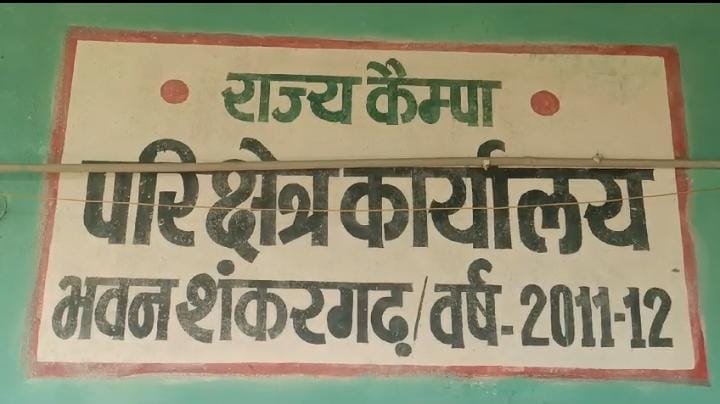 • राज्य कैम्पा •
परिक्षेत्र कार्यालय
भवन शंकरगढ़/वर्ष-2011-12